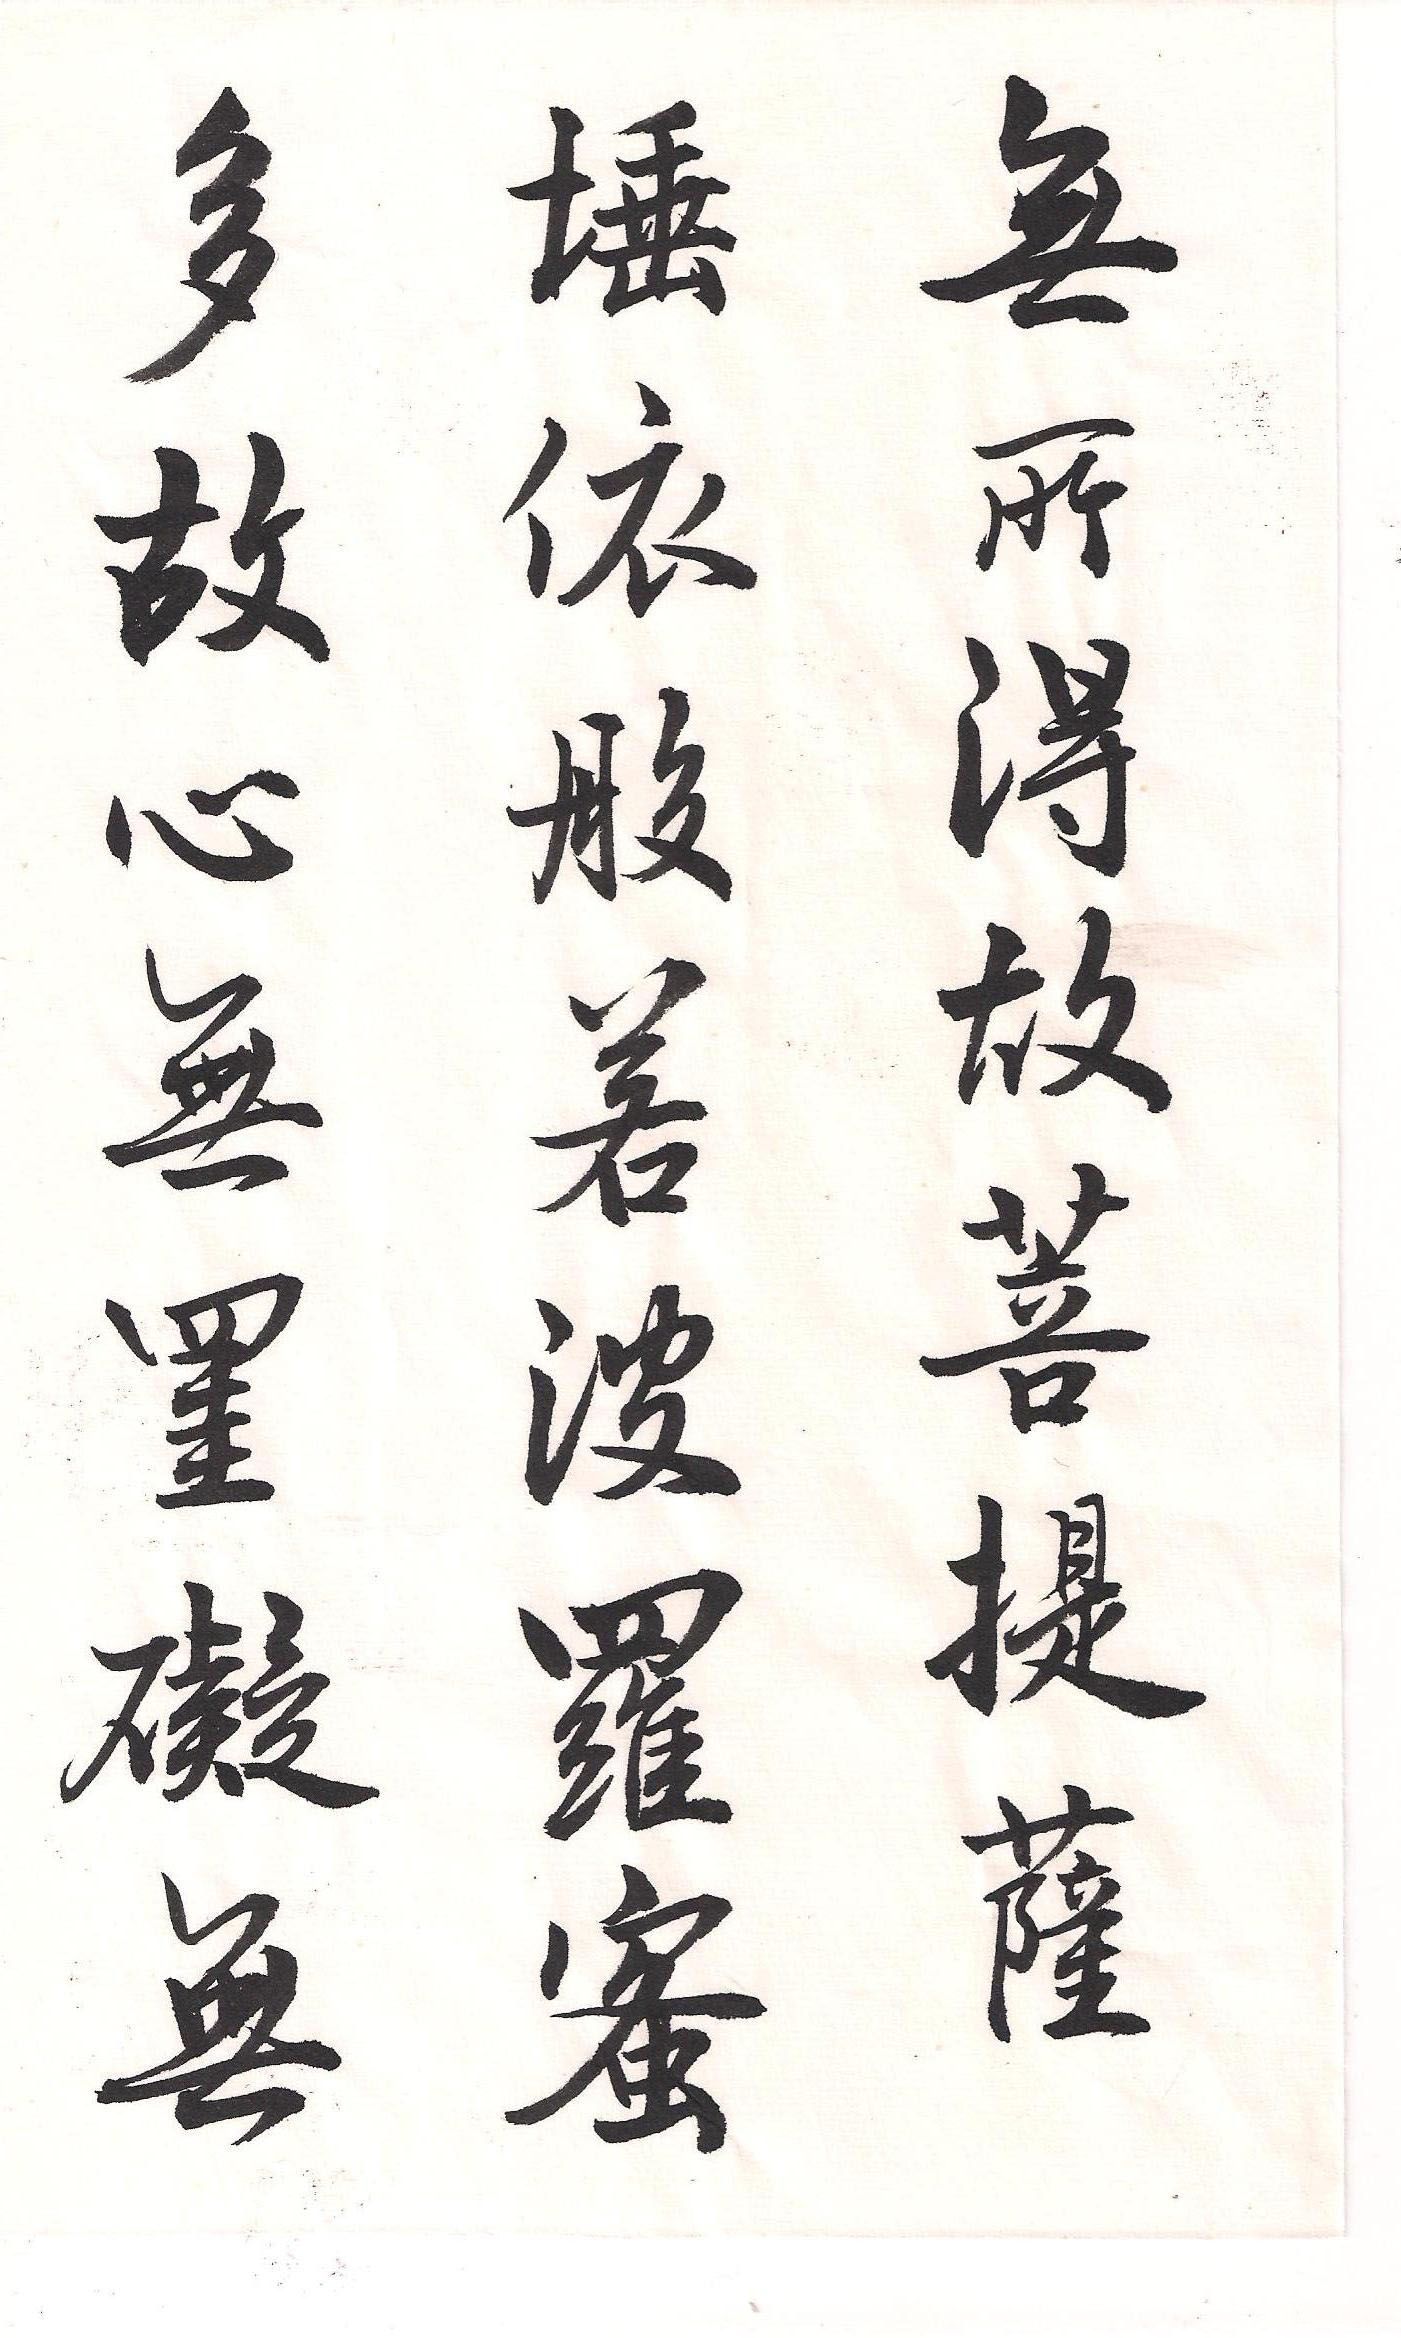 無所得故菩提薩
埵依般若波羅蜜
多故心無罣礙無